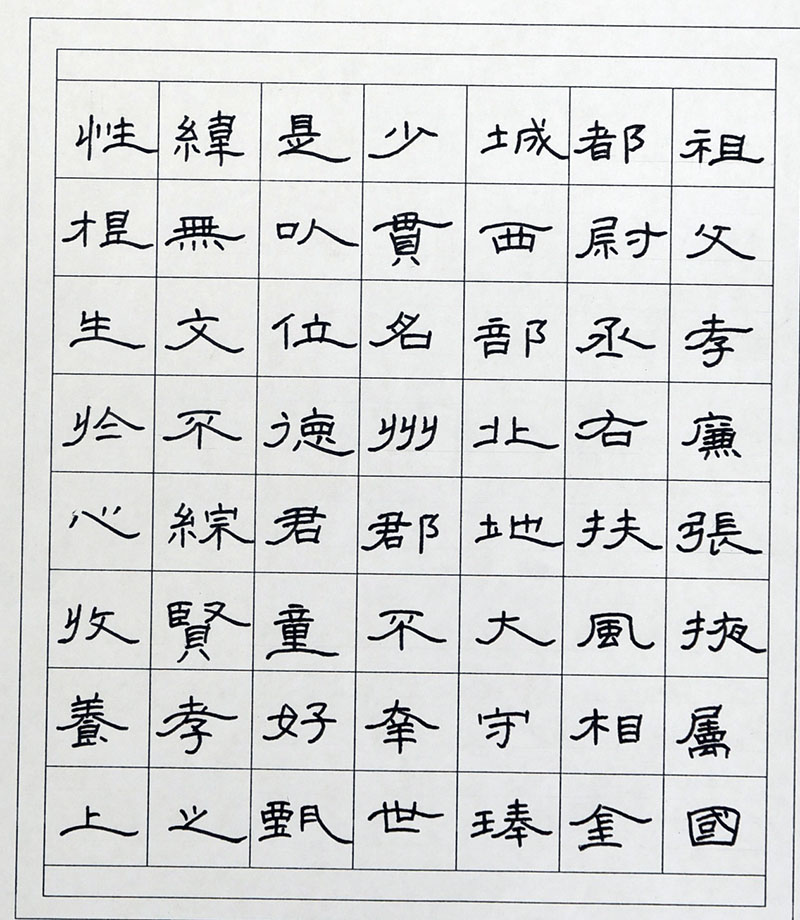 祖父孝廉張掖属國
都尉丞右扶風相金
城西部北地大守琫
少貫名州郡不幸世
是以位德君童好甄
緯無文不綜賢孝之
性根生於心收養上